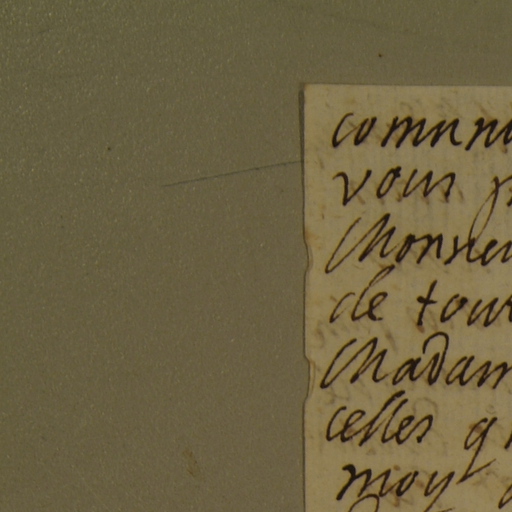 comman
vous p
Monsieu
de tout
Madam
celles q
moy